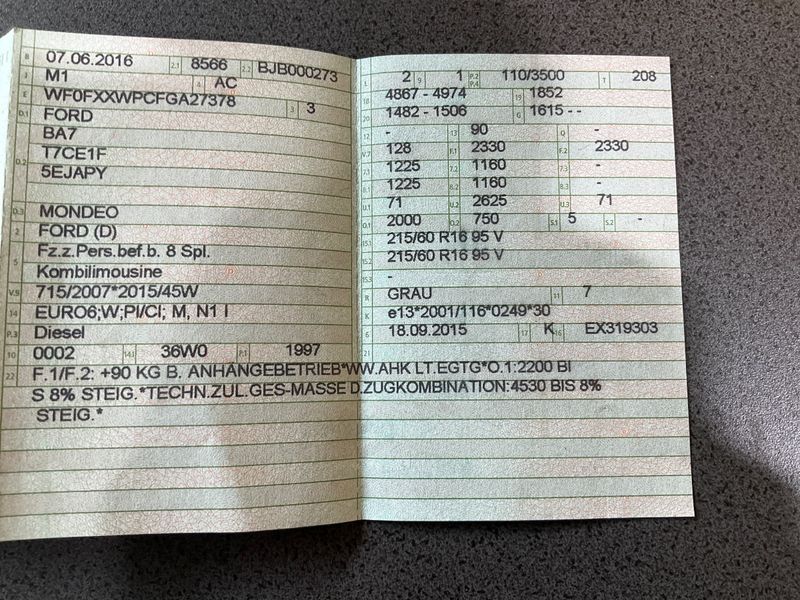 B 07.06.2016 2.1 8566 2.2 BJB000273
J M1 4 AC
E WF0FXXWPCFGA27378 3 3
D.1 FORD
BA7
D.2 T7CE1F
5EJAPY
D.3 MONDEO
2 FORD (D)
5 Fz.z.Pers.bef.b. 8 Spl.
Kombilimousine
V.9 715/2007*2015/45W
14 EURO6;W;PI/CI; M, N1 I
P.3 Diesel
10 0002 14.1 36W0 P.1 1997
L 2 9 1 P.2 P.4 110/3500 T 208
18 4867 - 4974 19 1852
20 1482 - 1506 G 1615 - -
12 - 13 90 Q -
V.7 128 F.1 2330 F.2 2330
7.1 1225 7.2 1160 7.3 -
8.1 1225 8.2 1160 8.3 -
U.1 71 U.2 2625 U.3 71
O.1 2000 O.2 750 S.1 5 S.2 -
15.1 215/60 R16 95 V
15.2 215/60 R16 95 V
15.3 -
R GRAU 11 7
K e13*2001/116*0249*30
6 18.09.2015 17 K 16 EX319303
21
22 F.1/F.2: +90 KG B. ANHÄNGEBETRIEB*WW.AHK LT.EGTG*O.1:2200 BI
S 8% STEIG.*TECHN.ZUL.GES-MASSE D.ZUGKOMBINATION:4530 BIS 8%
STEIG.*